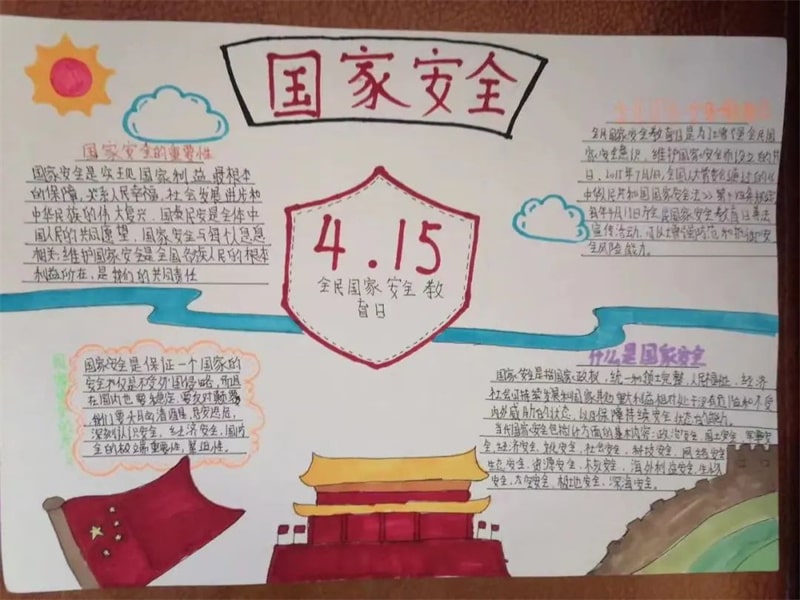 国家安全
国家安全的重要性
国家安全是实现国家利益最根本
的保障,关系人民幸福,社会发展进步和
中华民族的伟大复兴,国泰民安是全体中
国人民的共同愿望,国家安全与每个人息息
相关,维护国家安全是全国各族人民的根本
利益所在,是我们的共同责任
4.15
全民国家安全教
育日
全民国家安全教育日是为了增强全民国
家安全意识,维护国家安全而设立的节
日。2015年7月1日,全国人大常委会通过的《
中华人民共和国国家安全法》第十四条规定
每年4月15日为全民国家安全教育日
宣传活动,可以增强防范和抵御安
全风险能力。
国家安全是保证一个国家的
安全不仅是不受外国侵略,而且
在国内也要稳定
们要头目的清醒,居安思危,
深刻认识安全,经济安全,国防安
全的极端重要性,紧迫性。
什么是国家安全
国家安全是指国家政权,统一和领土完整,人民福祉,经济
社会可持续发展和国家其他重大利益相对处于没有危险和不受
内外威胁的状态,以及保障持续安全状态的能力。
当代国家安全包括16方面的基本内容:政治安全,国土安全,军事安
全,经济安全,文化安全,社会安全,科技安全,网络安全,
生态安全,资源安全,核安全,海外利益安全,生物
安全,太空安全,极地安全,深海安全。